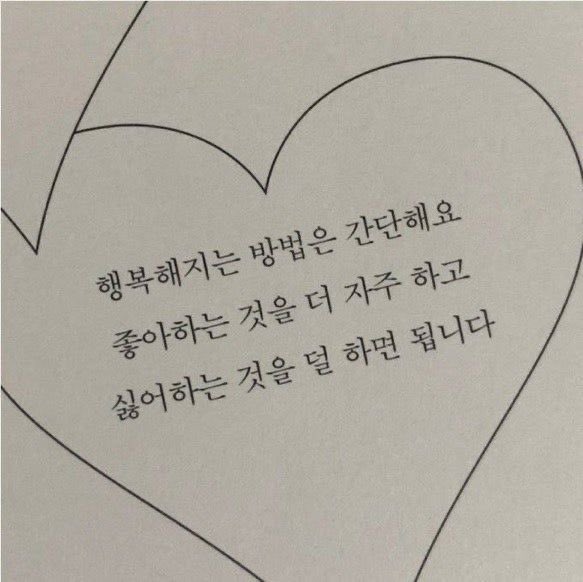 행복해지는 방법은 간단해요
좋아하는 것을 더 자주 하고
싫어하는 것을 덜 하면 됩니다